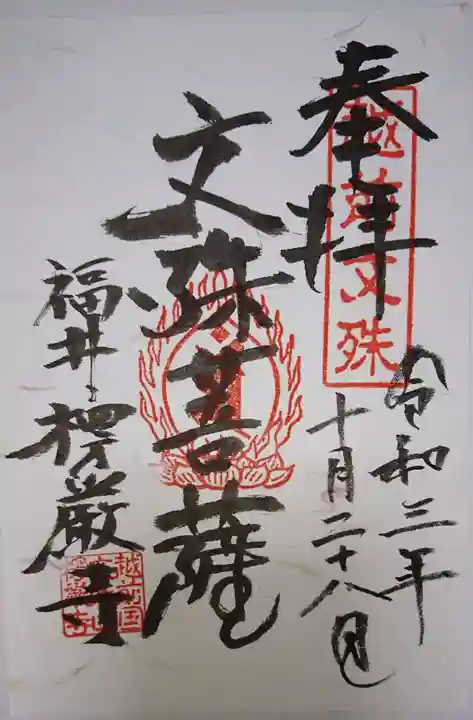 奉拝
越前文殊
令和三年
十月二十八日
文殊菩薩
福井 楞厳寺